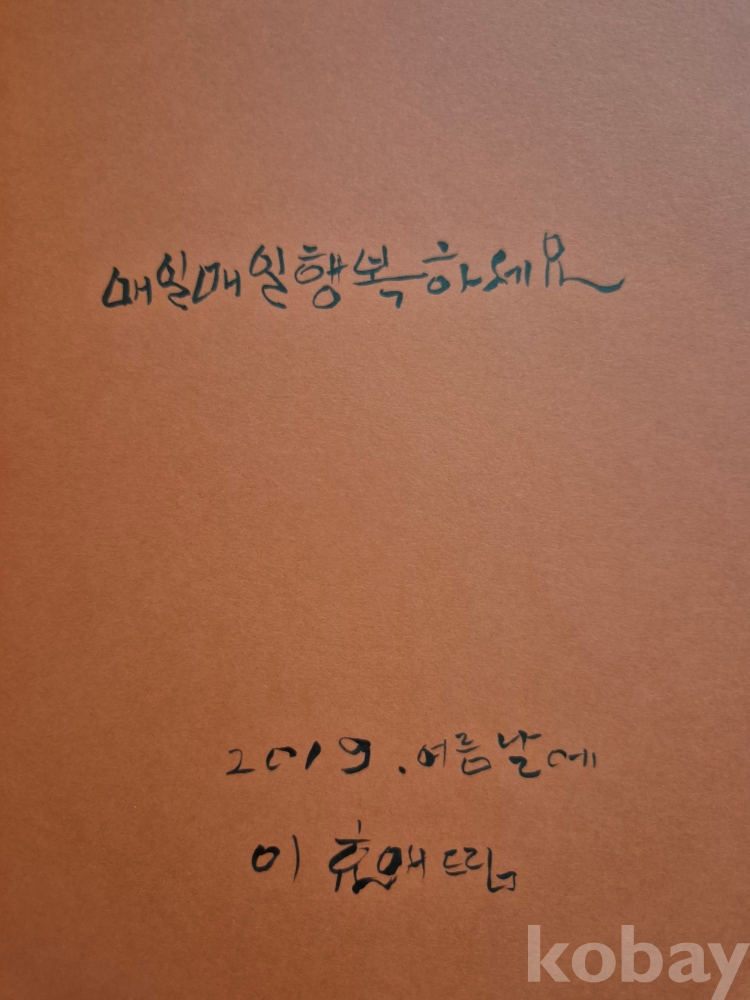 매일매일 행복하세요
2019. 여름날에
이효애 드림
kobay